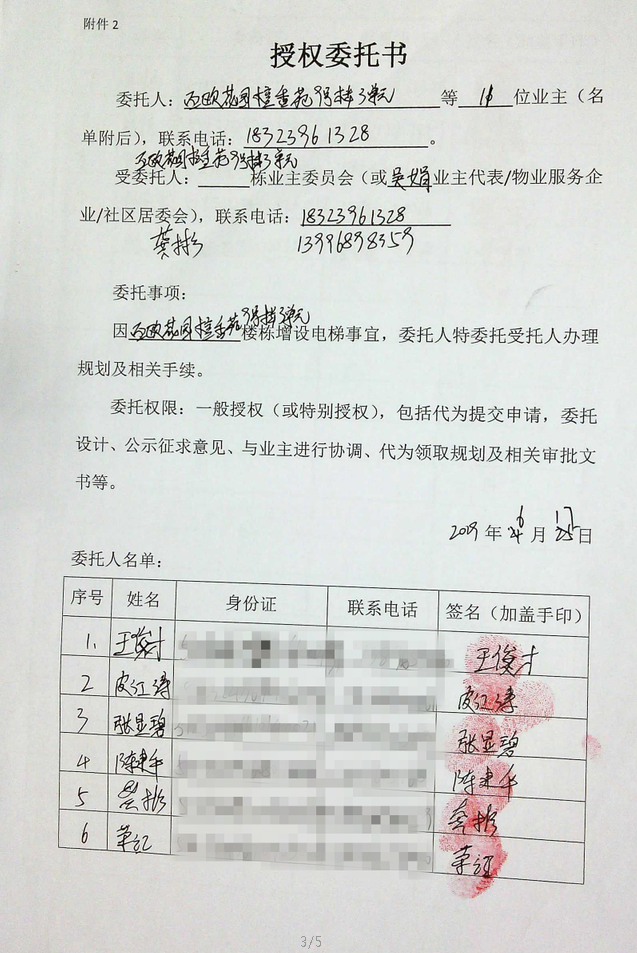 附件2
授权委托书
委托人：西欧花园檀香苑9号楼3单元等 位业主（名
单附后），联系电话：18323961328。
西欧花园檀香苑9号楼3单元
受委托人：栋业主委员会（或吴娟业主代表/物业服务企
业/社区居委会），联系电话：18323961328
龚彬 13996898359
委托事项：
因西欧花园檀香苑9号楼3单元楼栋增设电梯事宜，委托人特委托受托人办理
规划及相关手续。
委托权限：一般授权（或特别授权），包括代为提交申请，委托
设计、公示征求意见、与业主进行协调、代为领取规划及相关审批文
书等。
2019年6月17日
委托人名单：
序号 姓名 身份证 联系电话 签名（加盖手印）
1. 王俊才 王俊才
2 皮江涛 皮江涛
3 张显碧 张显碧
4 陈建华 陈建华
5 龚彬 龚彬
6
3/5